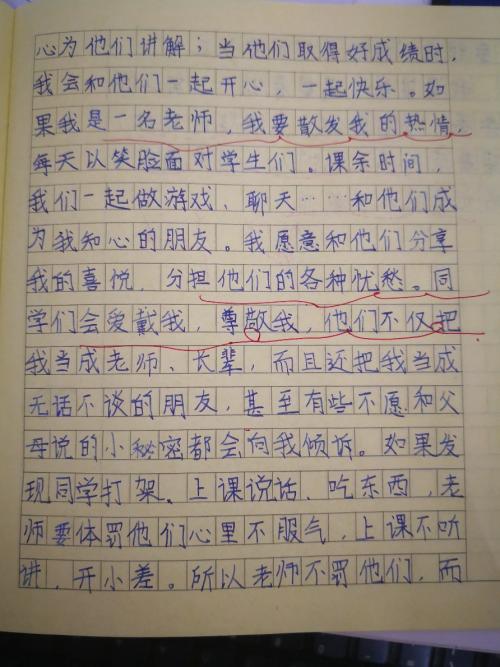 心为他们讲解；当他们取得好成绩时，
我会和他们一起开心，一起快乐。如
果我是一名老师，我要散发我的热情，
每天以笑脸面对学生们。课余时间，
我们一起做游戏、聊天……和他们成
为我知心的朋友。我愿意和他们分享
我的喜悦，分担他们的各种忧愁。同
学们会爱戴我，尊敬我，他们不仅把
我当成老师、长辈，而且还把我当成
无话不谈的朋友，甚至有些不愿和父
母说的小秘密都会向我倾诉。如果发
现同学打架、上课说话、吃东西，老
师要体罚他们心里不服气，上课不听
讲，开小差。所以老师不罚他们，而